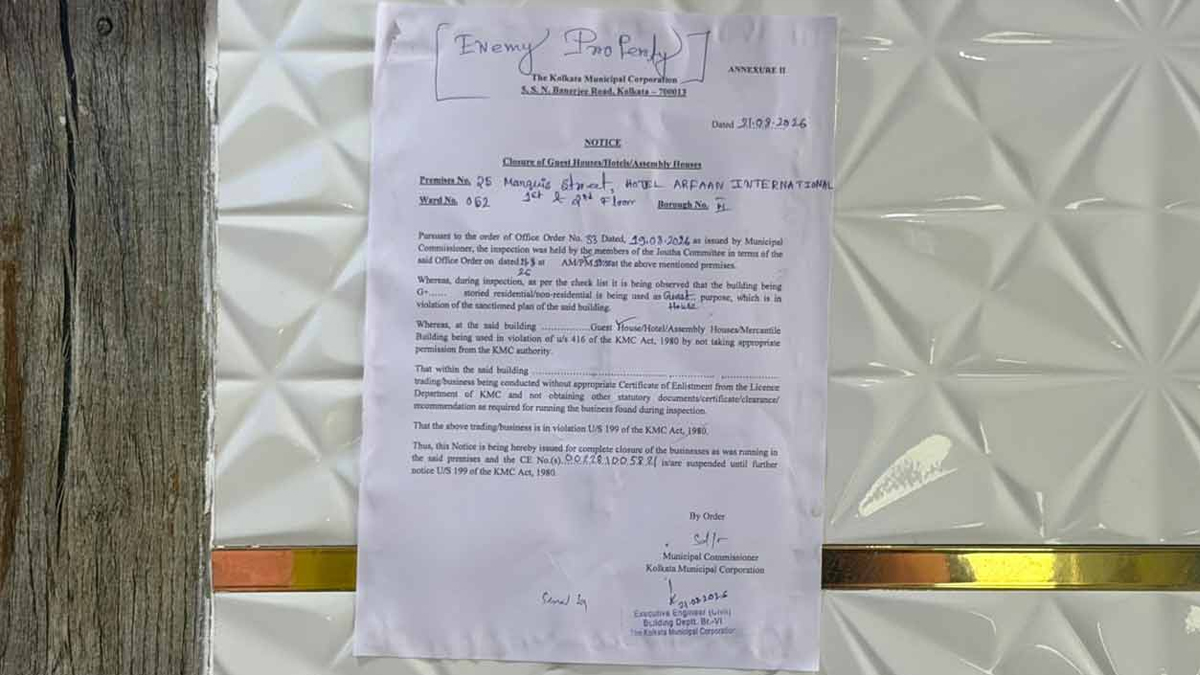 [Enemy Property]
ANNEXURE II
The Kolkata Municipal Corporation
5, S. N. Banerjee Road, Kolkata – 700013
Dated 21.08.2026
NOTICE
Closure of Guest Houses/Hotels/Assembly Houses
Premises No. 25 Marquis Street, HOTEL ARFAAN INTERNATIONAL
1st & 2nd Floor
Ward No. 052 Borough No.
Pursuant to the order of Office Order No. 53 Dated, 19.08.2026 as issued by Municipal
Commissioner, the inspection was held by the members of the Committee in terms of the
said Office Order on dated at AM/PM at the above mentioned premises.
Whereas, during inspection, as per the check list it is being observed that the building being
G+...... storied residential/non-residential is being used as Guest House purpose, which is in
violation of the sanctioned plan of the said building.
Whereas, at the said building ................Guest House/Hotel/Assembly Houses/Mercantile
Building being used in violation of u/s 416 of the KMC Act, 1980 by not taking appropriate
permission from the KMC authority.
That within the said building ................................................
trading/business being conducted without appropriate Certificate of Enlistment from the Licence
Department of KMC and not obtaining other statutory documents/certificate/clearance/
recommendation as required for running the business found during inspection.
That the above trading/business is in violation U/S 199 of the KMC Act, 1980.
Thus, this Notice is being hereby issued for complete closure of the businesses as was running in
the said premises and the CE No.(s). is/are suspended until further
notice U/S 199 of the KMC Act, 1980.
By Order
Sd/-
Municipal Commissioner
Kolkata Municipal Corporation
21.08.2026
Executive Engineer (Civil)
Building Deptt. Br.-VI
The Kolkata Municipal Corporation